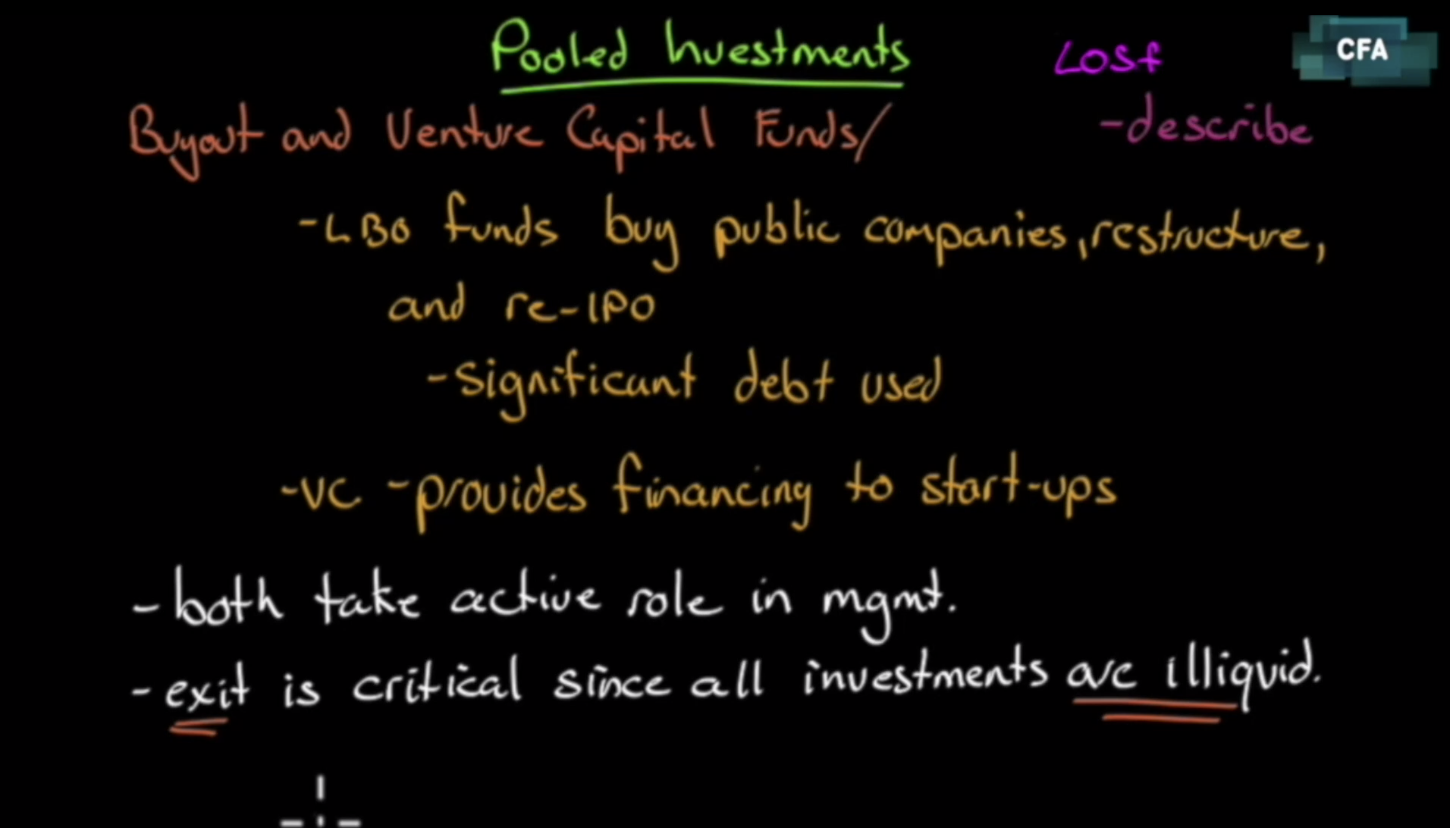 Pooled Investments
LOSf
CFA
-describe
Buyout and Venture Capital Funds/
-LBO funds buy public companies, restructure,
and re-IPO
-significant debt used
-VC -provides financing to start-ups
-both take active role in mgmt.
-exit is critical since all investments are illiquid.